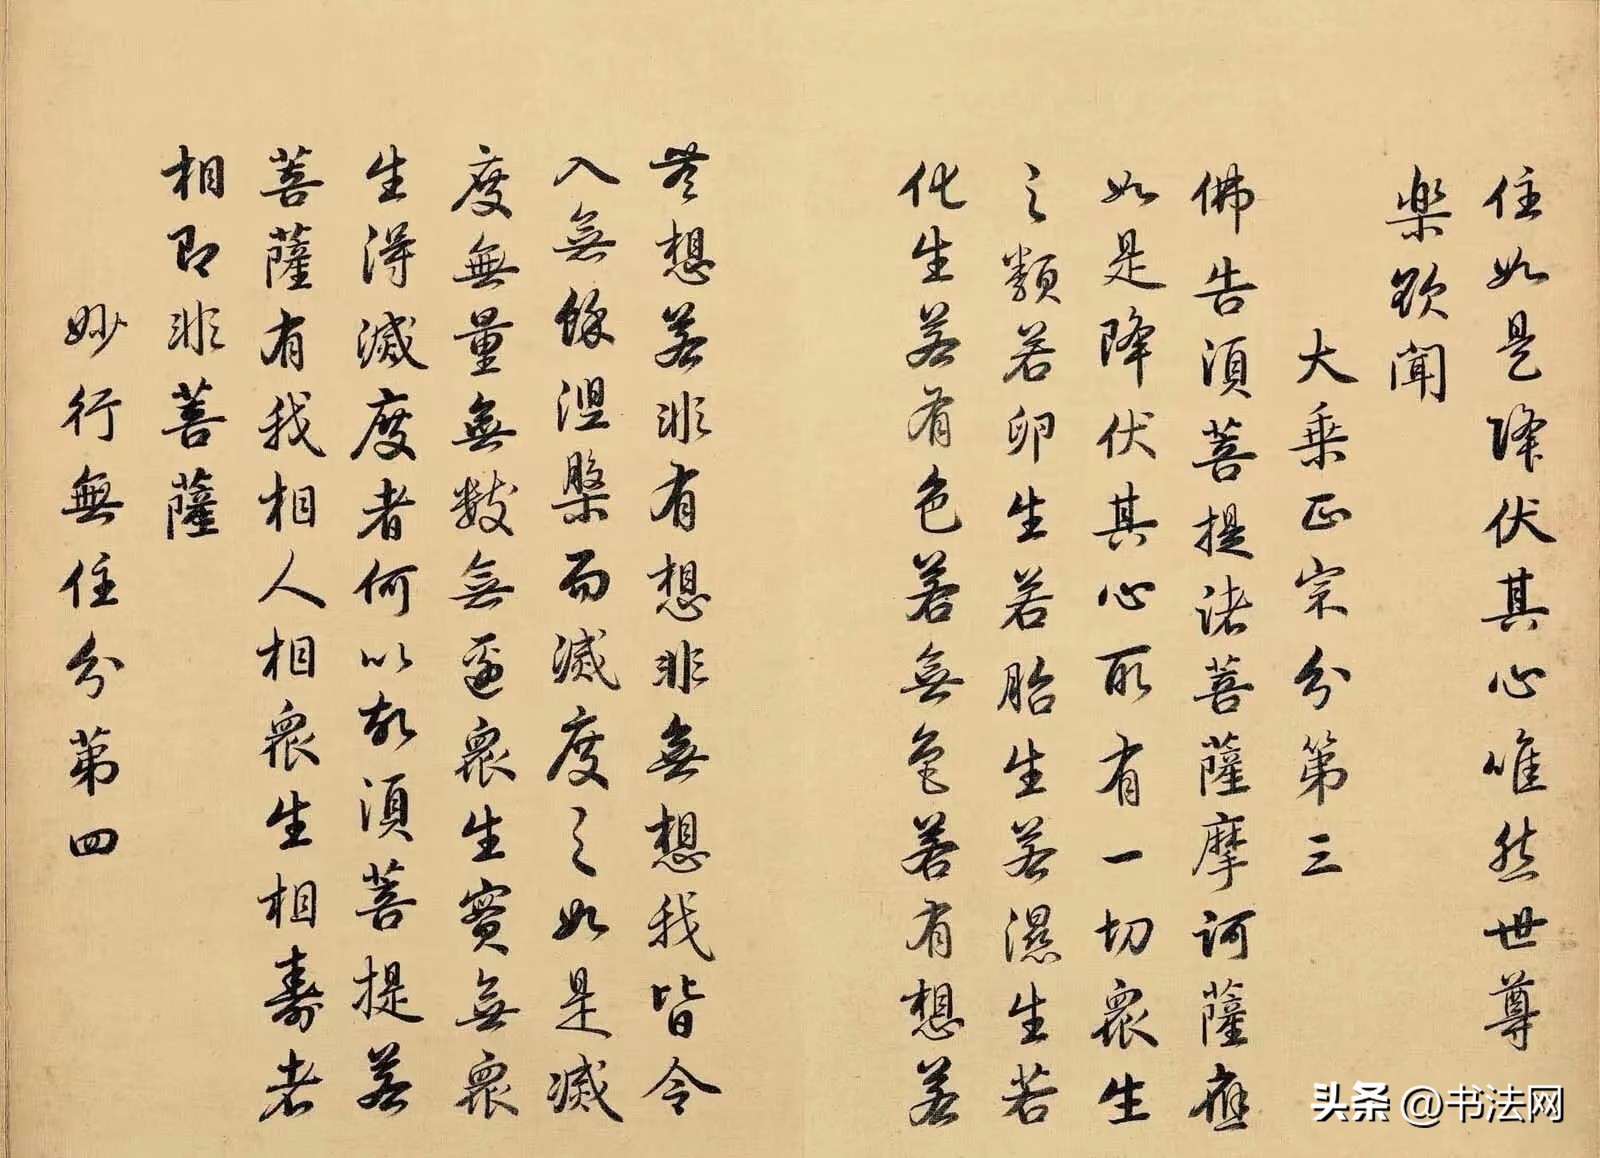 住如是降伏其心唯然世尊
樂欲聞
大乘正宗分第三
佛告須菩提諸菩薩摩訶薩應
如是降伏其心所有一切衆生
之類若卵生若胎生若濕生若
化生若有色若無色若有想若
無想若非有想非無想我皆令
入無餘涅槃而滅度之如是滅
度無量無數無邊衆生實無衆
生得滅度者何以故須菩提若
菩薩有我相人相衆生相壽者
相即非菩薩
妙行無住分第四
头条 @书法网